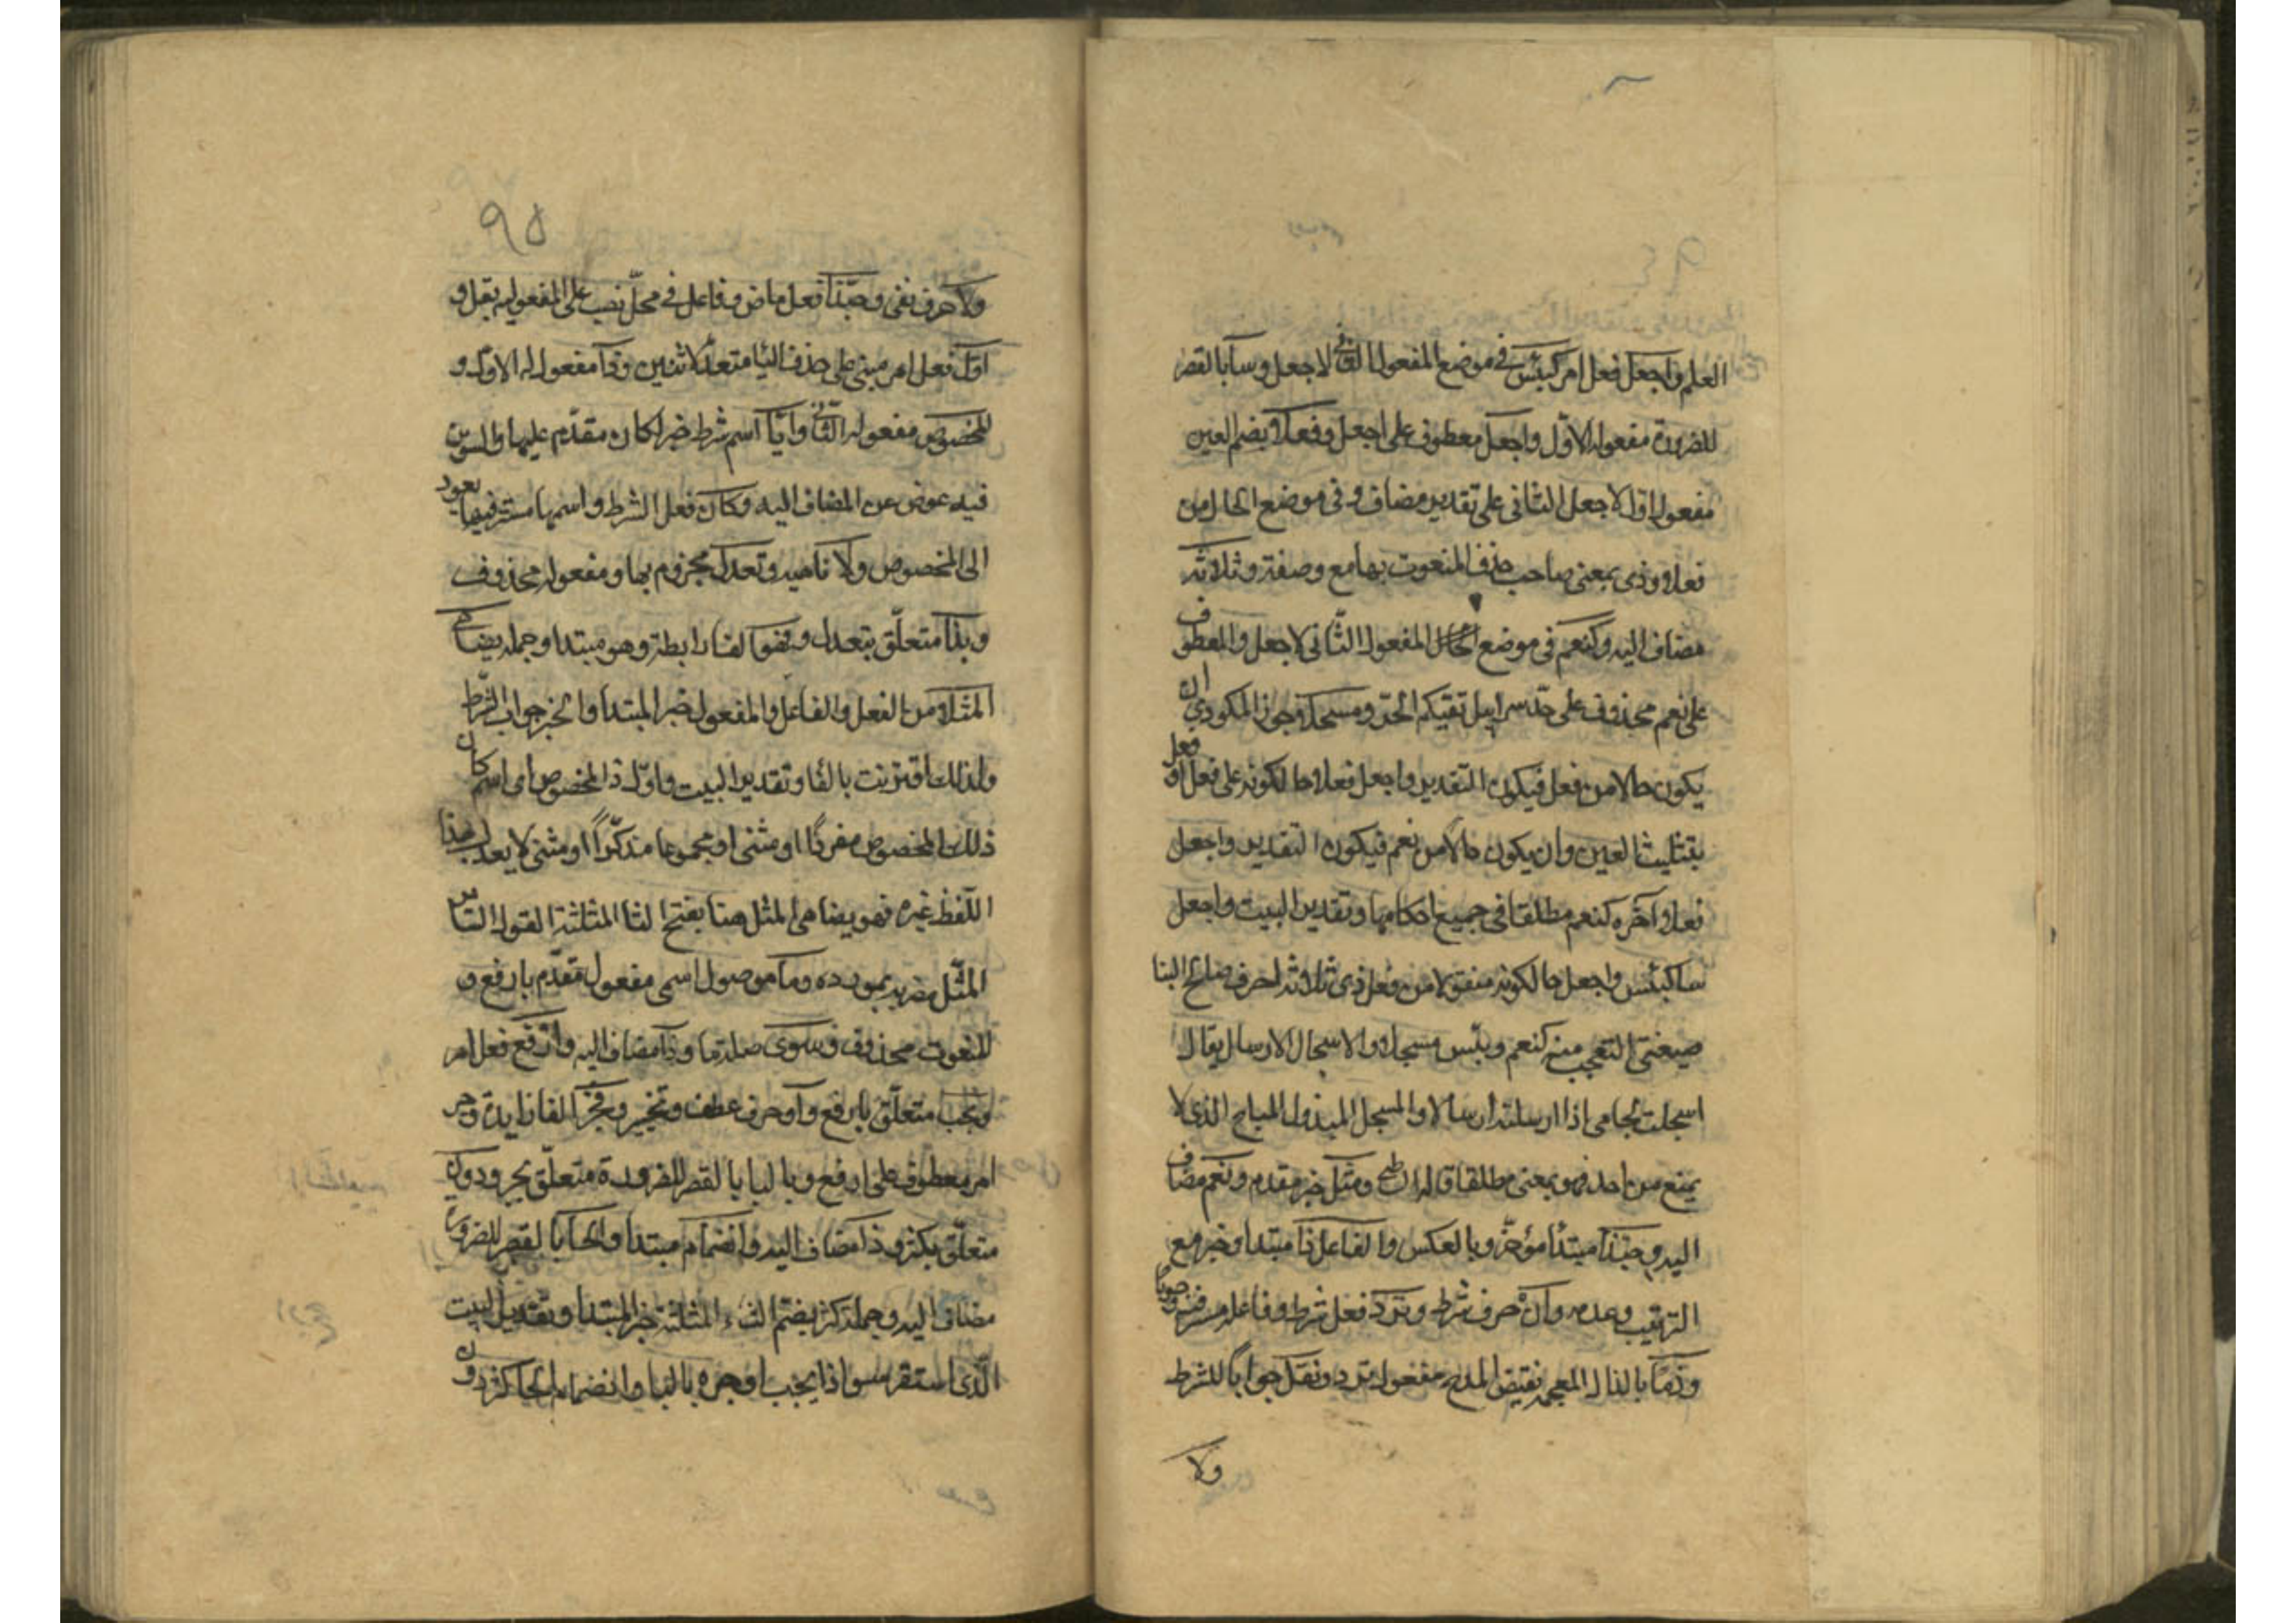 العلم واجعل فعل امر كبئس في موضع المفعول الثاني لاجعل وسا بالقصر
للضرورة مفعوله الاوّل واجعل معطوف على اجعل وفعلا بضم العين
مفعول اوّل لاجعل الثاني على تقدير مضاف وفي موضع الحال من
فعلا وذي بمعنى صاحب حذف المنعوت بها مع وصفته وثلاثة
مضاف اليه وكنعم في موضع المفعول الثّاني لاجعل والمعطوف
على نعم محذوف على حدّ سرابيل تقيكم الحرّ ومسجلا جوز المكودي ان
يكون حالا من فعل فيكون التقدير واجعل فعلا حالكونه على فعل او فعل
بتثليث العين وان يكون حالا من نعم فيكون التقدير واجعل
فعلا وآخره كنعم مطلقا في جميع احكامها وتقدير البيت واجعل
ساكبئس واجعل حالكونه منقولا من فعل ذي ثلاثة احرف صالح البنا
صيغتي التعجب منه كنعم وبئس مسجلا والاسجال الارسال يقال
اسجلت لجامى اذا ارسلته ارسالا والمسجل المبذول المباح الذي لا
يمنع من احد فهو بمعنى مطلقا قاله ومثل خبر مقدم ونعم مضاف
اليه وحبّذا مبتدأ مؤخّر وبالعكس والفاعل ذا مبتدا وخبر مع
الترتيب وعدمه وان حرف شرط وترد فعل شرط وفاعله مستتر فيه وجوبا
وذمّا بالذال المعجمه نقيض المدح مفعول ترد وفقل جوابا للشرط
ولا
٩٥
ولا حرف نفى وحبّذا فعل ماض وفاعل في محلّ نصب على المفعوليه بقل و
اول فعل امر مبني على حذف اليا متعدّ لاثنين وذا مفعوله الاوّل و
المخصوص مفعوله الثّاني وايّا اسم شرط خبر كان مقدّم عليها والتنوين
فيه عوض عن المضاف اليه وكان فعل الشرط واسمها مستتر فيها يعود
الى المخصوص ولا ناهيه وتعدل مجزوم بها ومفعوله محذوف
وبذا متعلّق بتعدل وفهو الفا رابطة وهو مبتدا وجملة يضاهي
المثلا من الفعل والفاعل والمفعول خبر المبتدا والخبر جواب الشّرط
ولذلك اقترنت بالفا وتقدير البيت واوّل ذا المخصوص اي اسم كان
ذلك المخصوص مفردًا او مثنى او مجموعا مذكّرًا او مثنى لا يعدل بهذا
اللّفظ غيره فهو يضاهي المثل هنا بفتح الثا المثلثة القول السّائر
المثّل مضربه بمورده وما موصول اسمى مفعول مقدّم بارفع و
المنعوت محذوف وسوى صلة ما وذا مضاف اليه وارفع فعل امر
وبحب متعلّق بارفع واو حرف عطف وتخيير وفجر الفا زايدة وجر
امر معطوف على ارفع وبالبا بالقصر للضرورة متعلّق بجر ودون
متعلّق بكثر وذا مضاف اليه وانضمام مبتدا والحا بالقصر للضرورة
مضاف اليه وجملة كثر بضمّ الثاء المثلثة خبر المبتدا وتقدير البيت
الّذي استقر سوا ذا بحب او جره بالبا وانضمام الحا كثر دون